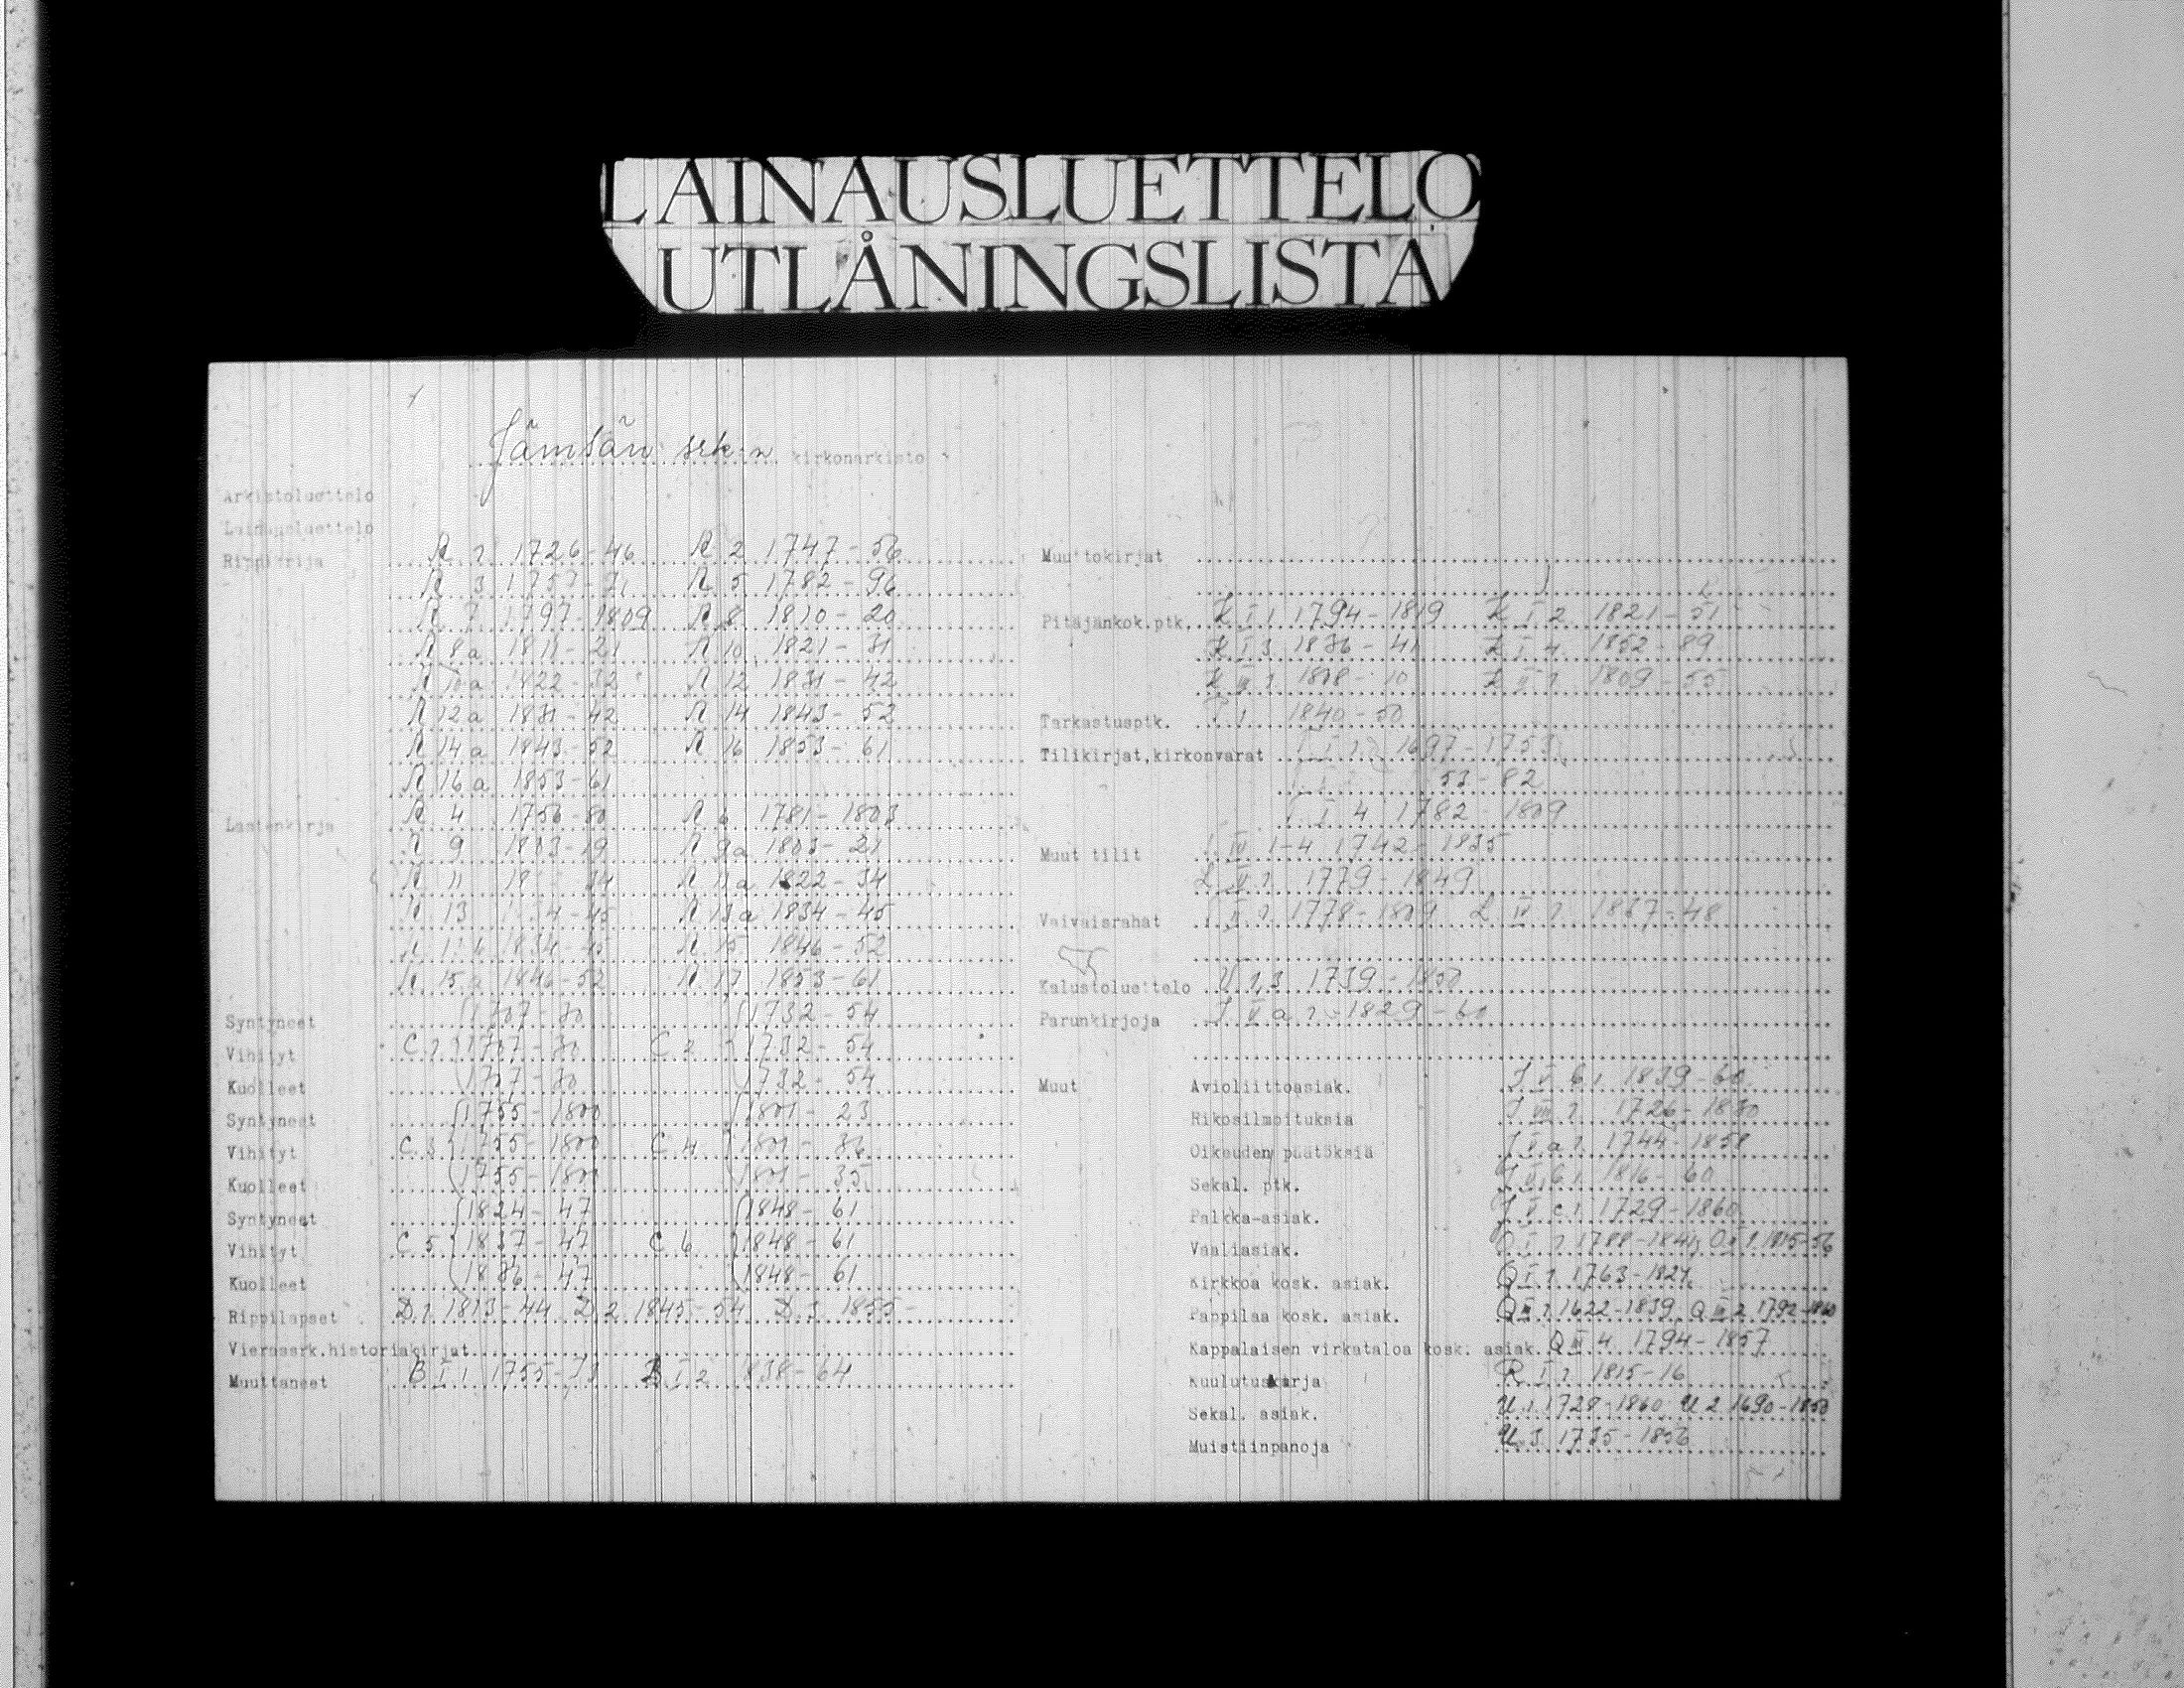 LAINAUSLUETTELO
UTLÅNINGSLISTA
Jämsän srk:n kirkonarkisto
Arkistoluettelo
Lainausluettelo
Rippikirja R 1 1726-46 R 2 1747-56
R 3 1757-71 R 5 1782-96
R 7 1797-1809 R 8 1810-20
R 8a 1811-21 R 10 1821-31
R 10a 1822-32 R 12 1831-42
R 12a 1831-42 R 14 1843-52
R 14a 1843-52 R 16 1853-61
R 16a 1853-61
Lastenkirja R 4 1756-80 R 6 1781-1803
R 9 1803-19 R 9a 1803-21
R 11 34 R 11a 1822-34
R 13 -45 R 13a 1834-45
1834-45 R 15 1846-52
R 15a 1846-52 R 17 1853-61
Syntyneet 1707-30 1732-54
Vihityt C 1 1707-30 C 2 1732-54
Kuolleet 1707-30 1732-54
Syntyneet 1755-1800 1801-23
Vihityt C 3 1755-1800 C 4 1801-36
Kuolleet 1755-1800 1801-35
Syntyneet 1824-47 1848-61
Vihityt C 5 1837-47 C 6 1848-61
Kuolleet 1836-47 1848-61
Rippilapset D 1 1813-44 D 2 1845-54 D 3 1855-
Vierassrk.historiakirjat
Muuttaneet B I 1 1755-73 B I 2 1838-64
Muuttokirjat
Pitäjänkok.ptk. K I 1 1794-1819 K I 2 1821-51
K I 3 1836-41 K I 4 1852-89
K III 1 1808-10 K II 1 1809-55
Tarkastusptk. 1840-50
Tilikirjat,kirkonvarat 1697-1753
53-82
I 4 1782-1809
Muut tilit IV 1-4 1742-1835
1779-1849
Vaivaisrahat 1778-1809 L IV 1 1837-48
Kalustoluettelo 1,3 1739-1850
Perunkirjoja 1829-60
Muut Avioliittoasiak. 1839-60
Rikosilmoituksia 1726-1830
Oikeuden päätöksiä 1744-1858
Sekal. ptk. 1816-60
Palkka-asiak. 1729-1860
Vaaliasiak. O I 1 1788-1841, O II 1 1815-56
Kirkkoa kosk. asiak. Q I 1 1763-1827
Pappilaa kosk. asiak. Q II 1 1622-1839, Q II 2 1792-1860
Kappalaisen virkataloa kosk. asiak. Q III 4 1794-1857
Kuulutuskirja R I 1 1815-16
Sekal. asiak. U 1 1728-1860 U 2 1690-1850
Muistiinpanoja U 3 1735-1856